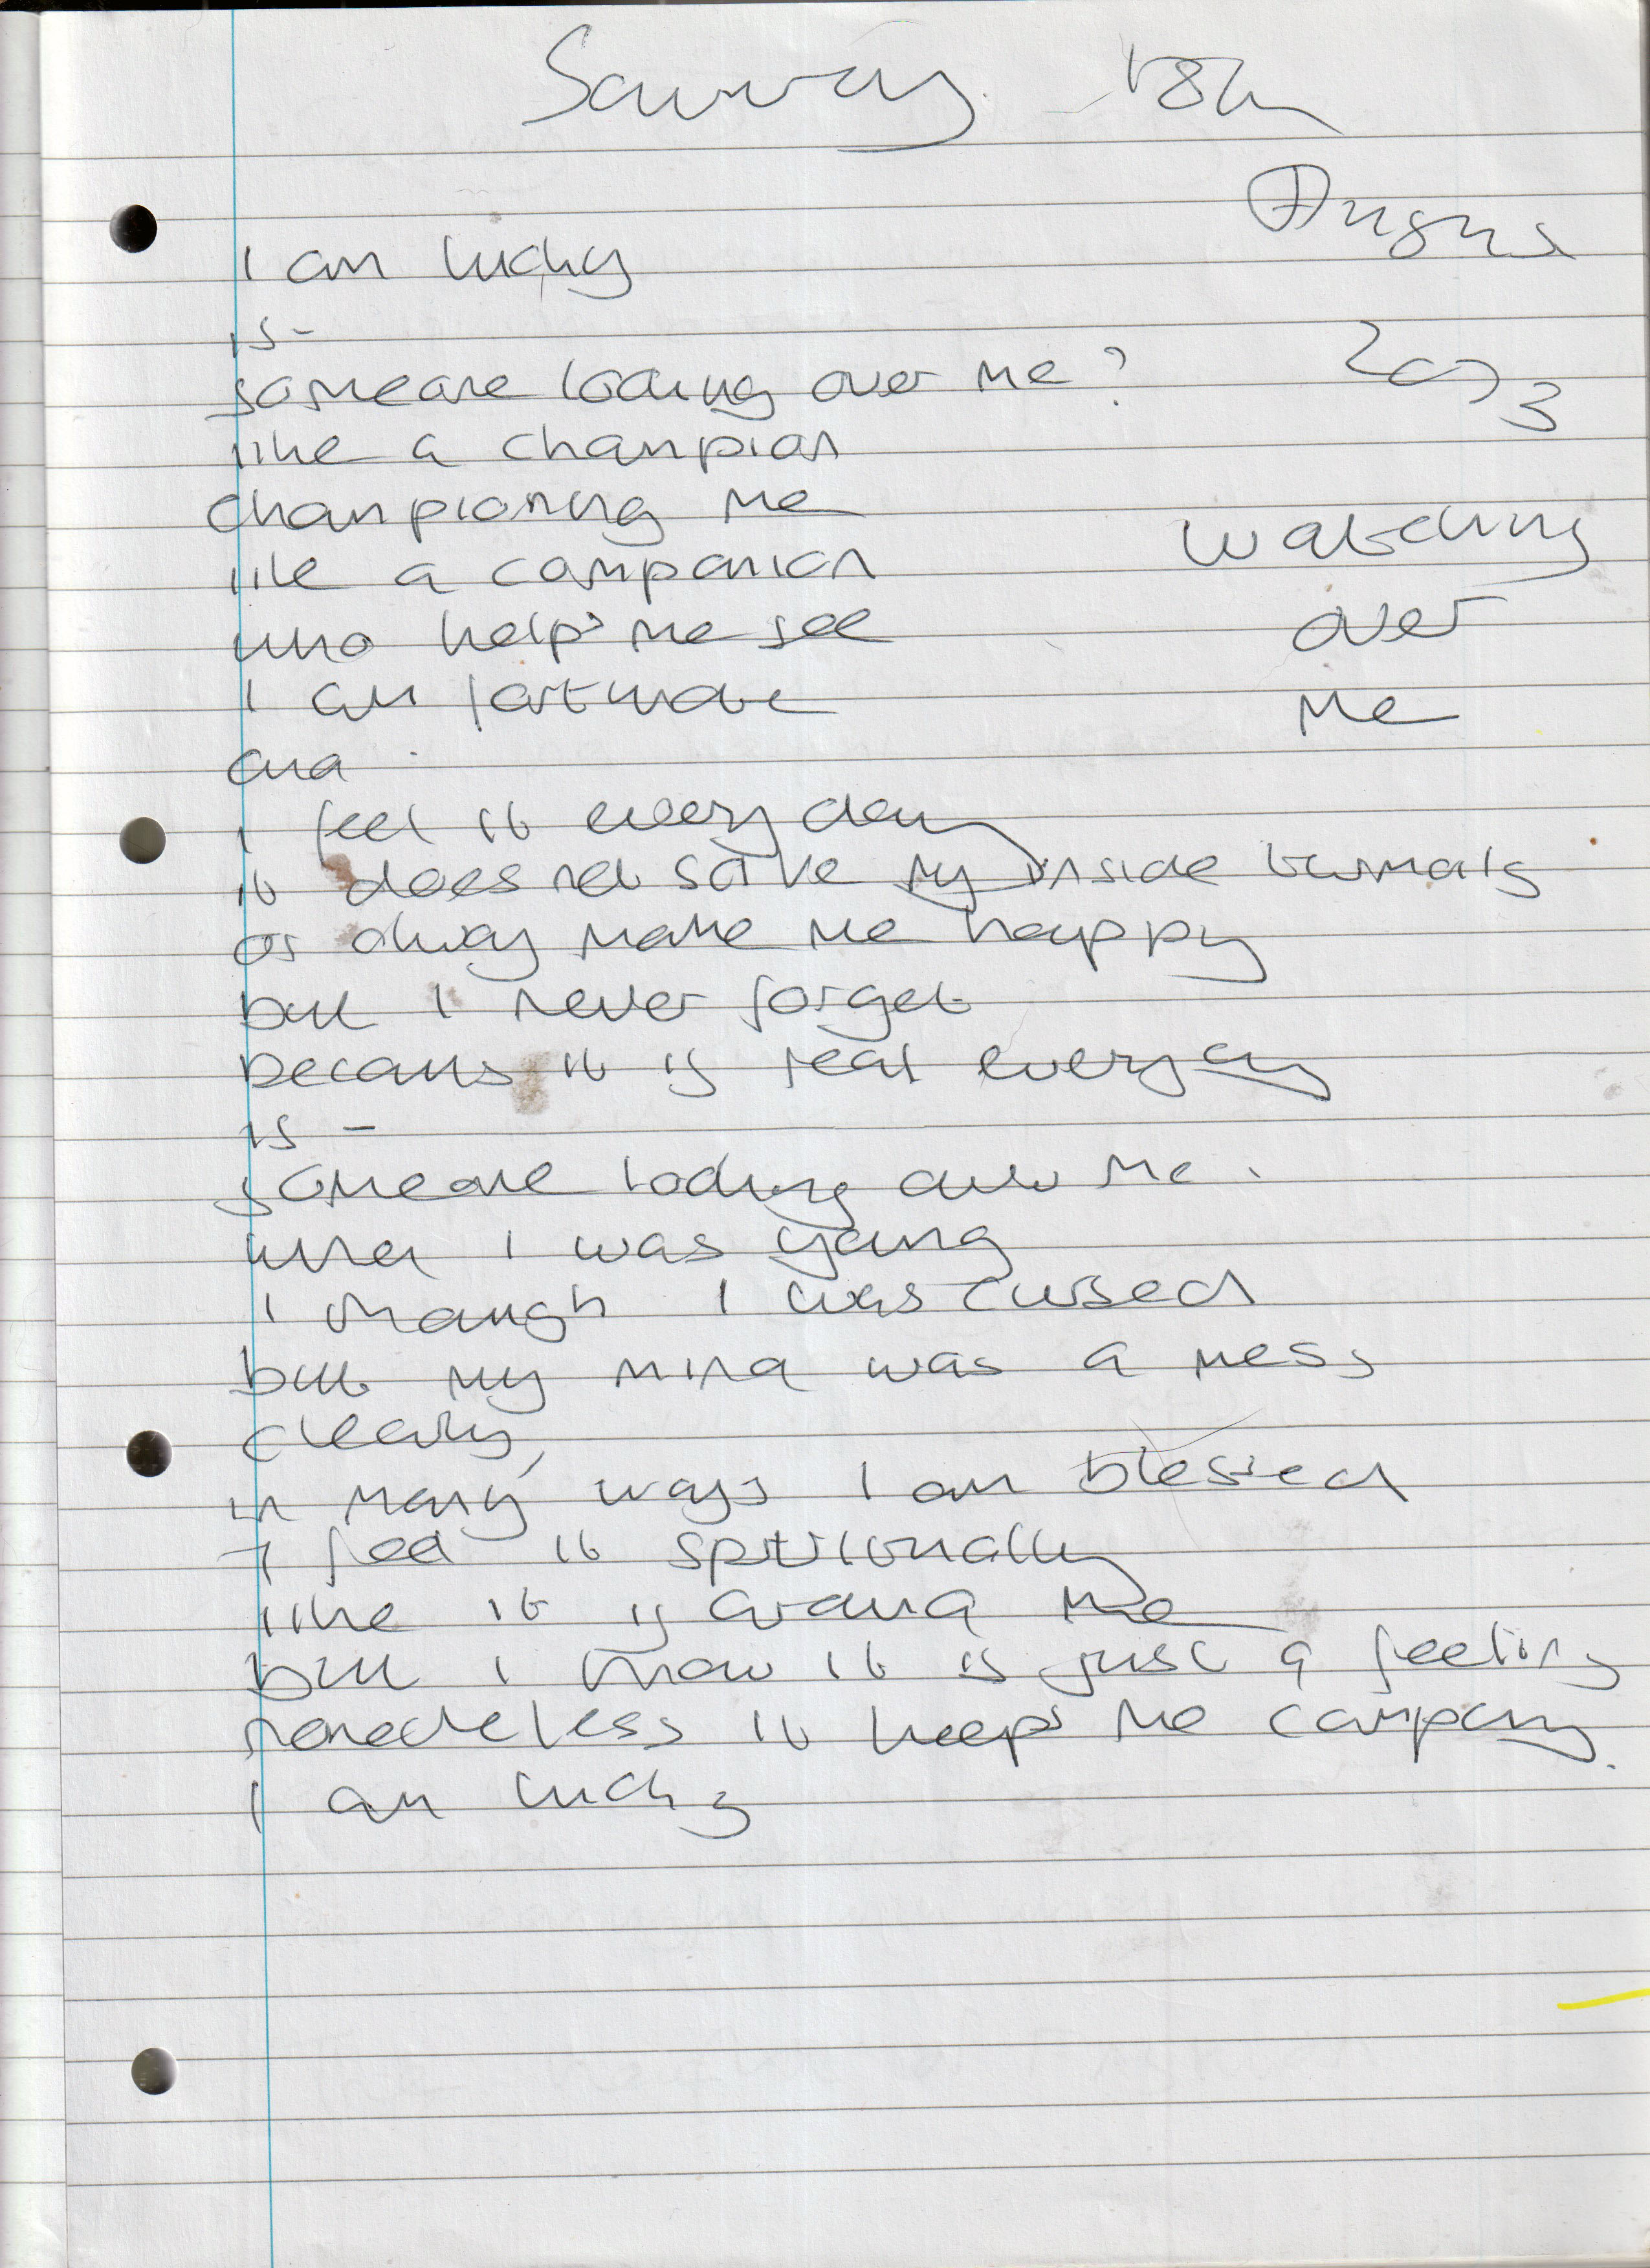 Saturday 18th
August
2003
I am lucky
is -
someone looking over me?
like a champion
championing me
like a companion
who helps me see
I am fortunate
and
I feel it every day
it does not solve my inside turmoils
or always make me happy
but I never forget
because it is real everyday
is -
someone looking over me.
when I was young
I though I was cursed
but my mind was a mess
clearly,
in many ways I am blessed
I feel it
like it is around me
but I know it is just a feeling
nonetheless it keeps me company.
I am lucky
watching
over
me